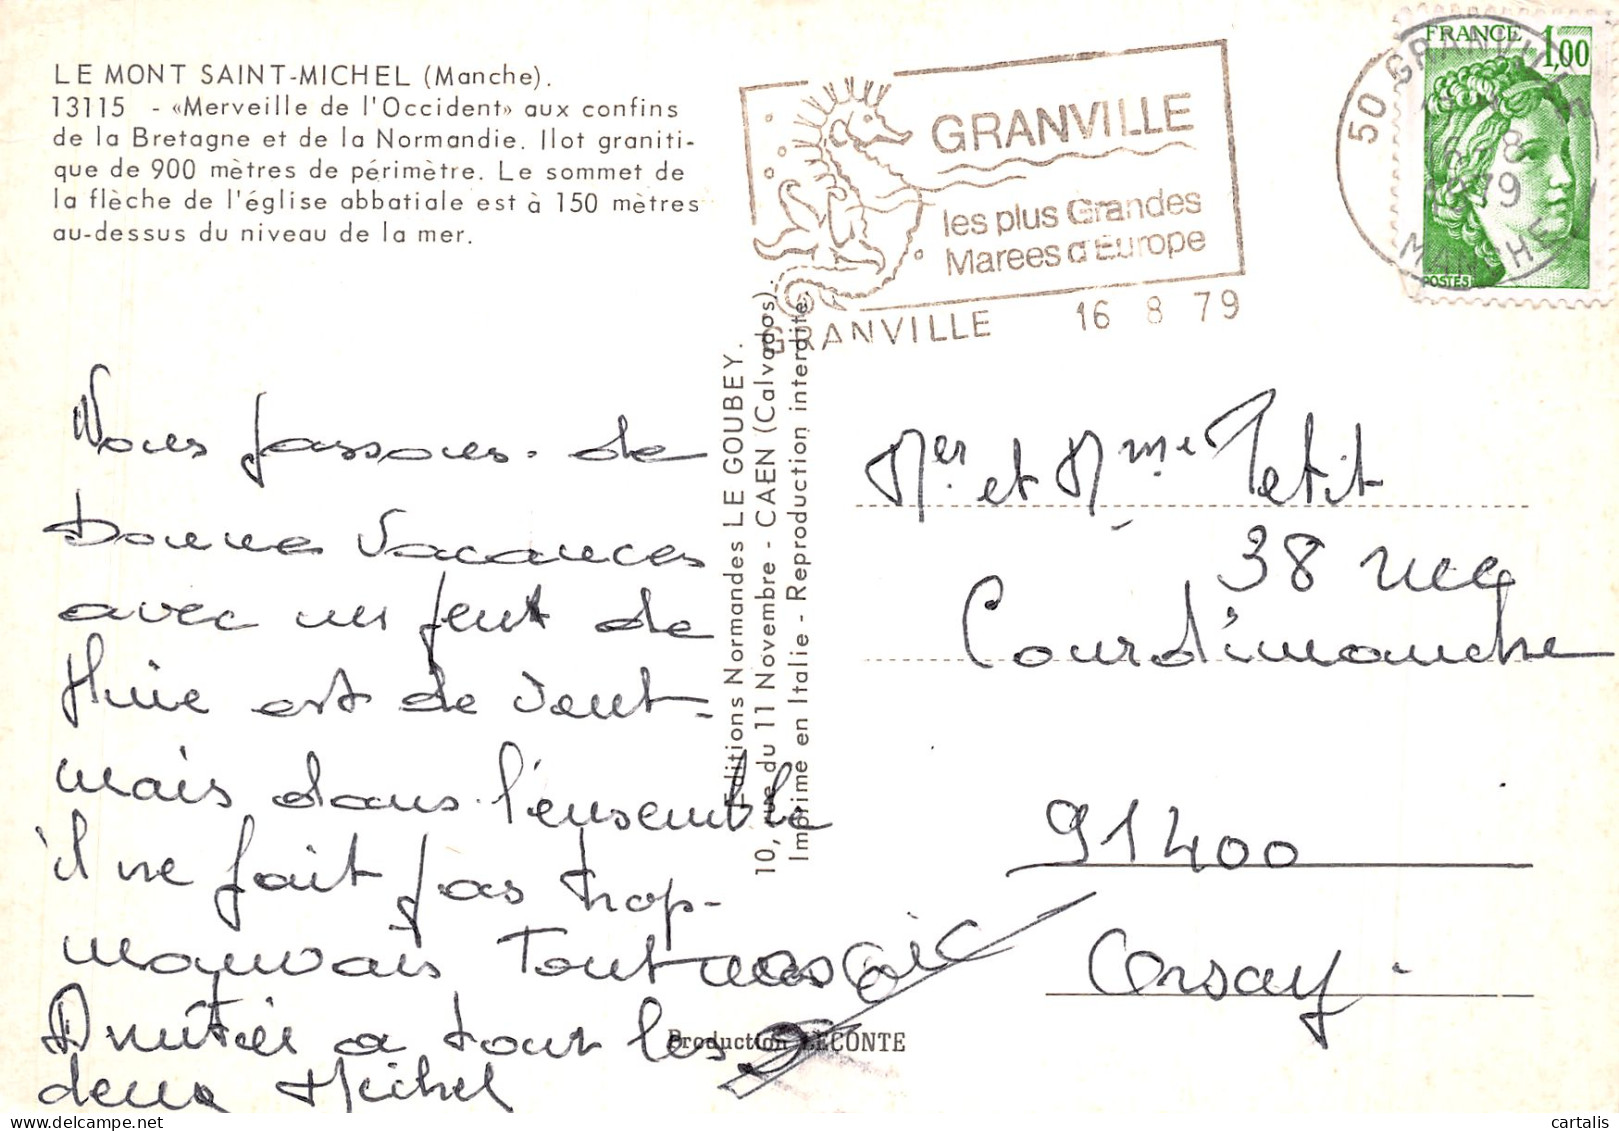 LE MONT SAINT-MICHEL (Manche).
13115 - «Merveille de l'Occident» aux confins
de la Bretagne et de la Normandie. Ilot graniti-
que de 900 mètres de périmètre. Le sommet de
la flèche de l'église abbatiale est à 150 mètres
au-dessus du niveau de la mer.
GRANVILLE
les plus Grandes
Marees d'Europe
GRANVILLE 16 8 79
50 GRANVILLE
16 8
1979
MANCHE
FRANCE 1,00
POSTES
Nous passons de
Bonnes Vacances
avec un peut de
Pluie est de Vent
mais dans l'ensemble
il ne fait pas trop
mauvais Tout
Amitiés a tout les
deux Michel
Editions Normandes LE GOUBEY.
10, rue du 11 Novembre - CAEN (Calvados).
Imprimé en Italie - Reproduction interdite.
Production LECONTE
Mer et Mme Petit
38 rue
Courdimanche
91400
Orsay
cartalis
delcampe.net